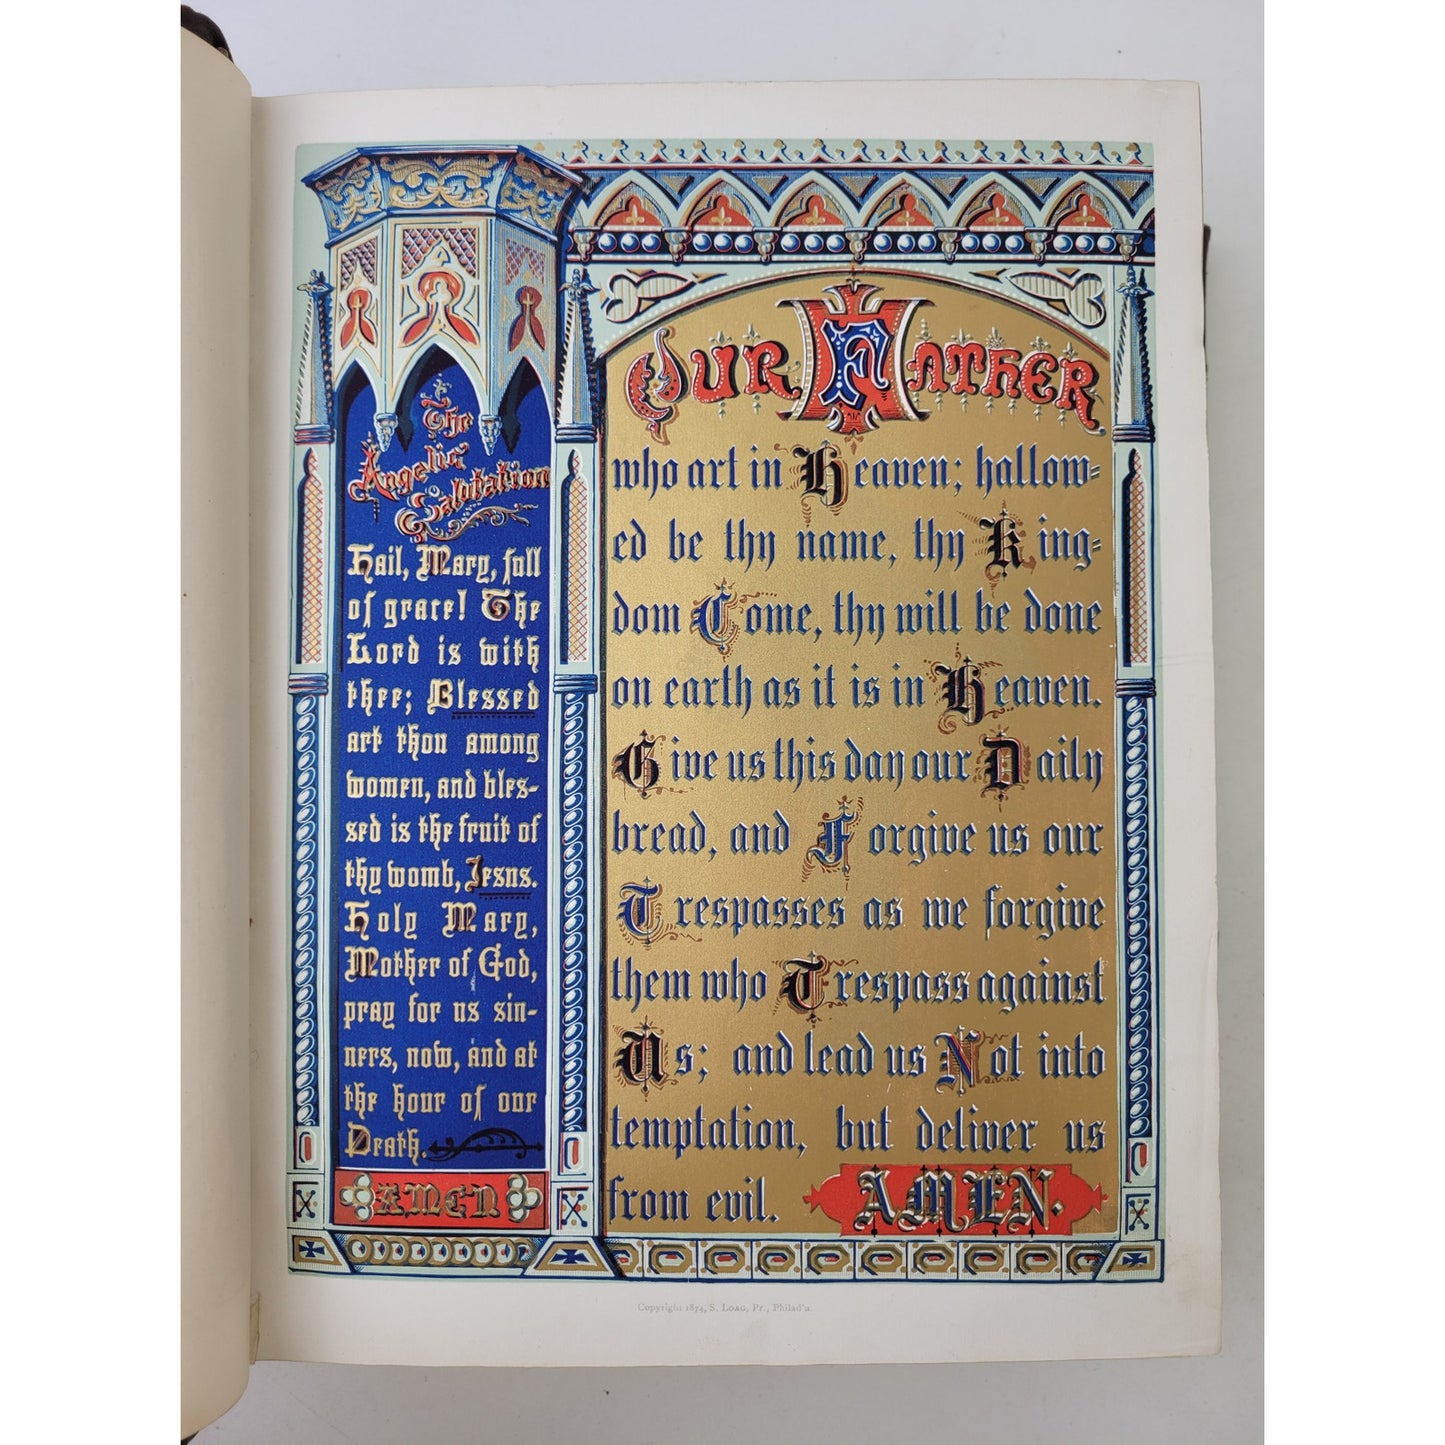 The
Angelic
Salutation
Hail, Mary, full
of grace! The
Lord is with
thee; Blessed
art thou among
women, and bles-
sed is the fruit of
thy womb, Jesus.
Holy Mary,
Mother of God,
pray for us sin-
ners, now, and at
the hour of our
Death.
AMEN
OUR FATHER
who art in Heaven; hallow=
ed be thy name, thy King=
dom Come, thy will be done
on earth as it is in Heaven.
Give us this day our Daily
bread, and Forgive us our
Trespasses as we forgive
them who Trespass against
Us; and lead us Not into
temptation, but deliver us
from evil. AMEN.
Copyright 1874, S. LOAG, Pr., Philad'a.